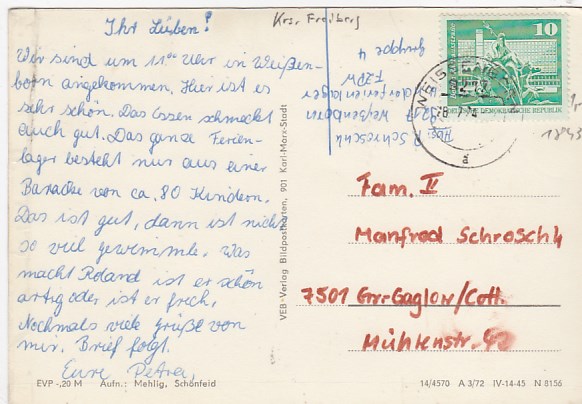 Ihr Lieben!
Wir sind um 11⁰⁰ Uhr in Weißen-
born angekommen. Hier ist es
sehr schön. Das Essen schmeckt
auch gut. Das ganze Ferien-
lager besteht nur aus einer
Baracke von ca. 80 Kindern.
Das ist gut, dann ist nicht
so viel gewimmle. Was
macht Roland ist er schön
artig oder ist er frech.
Nochmals viele Grüße von
mir. Brief folgt.
Eure Petra.
EVP -,20 M Aufn.: Mehlig, Schönfeld
VEB-Verlag Bildpostkarten, 901 Karl-Marx-Stadt
Krs. Freiberg
P. Schroschk
Weißenborn
FZPW
Gruppe 4
10
DEUTSCHE DEMOKRATISCHE REPUBLIK
Fam. II
Manfred Schroschk
7501 Grr-Gaglow/Cott.
Mühlenstr. 42
14/4570 A 3/72 IV-14-45 N 8156